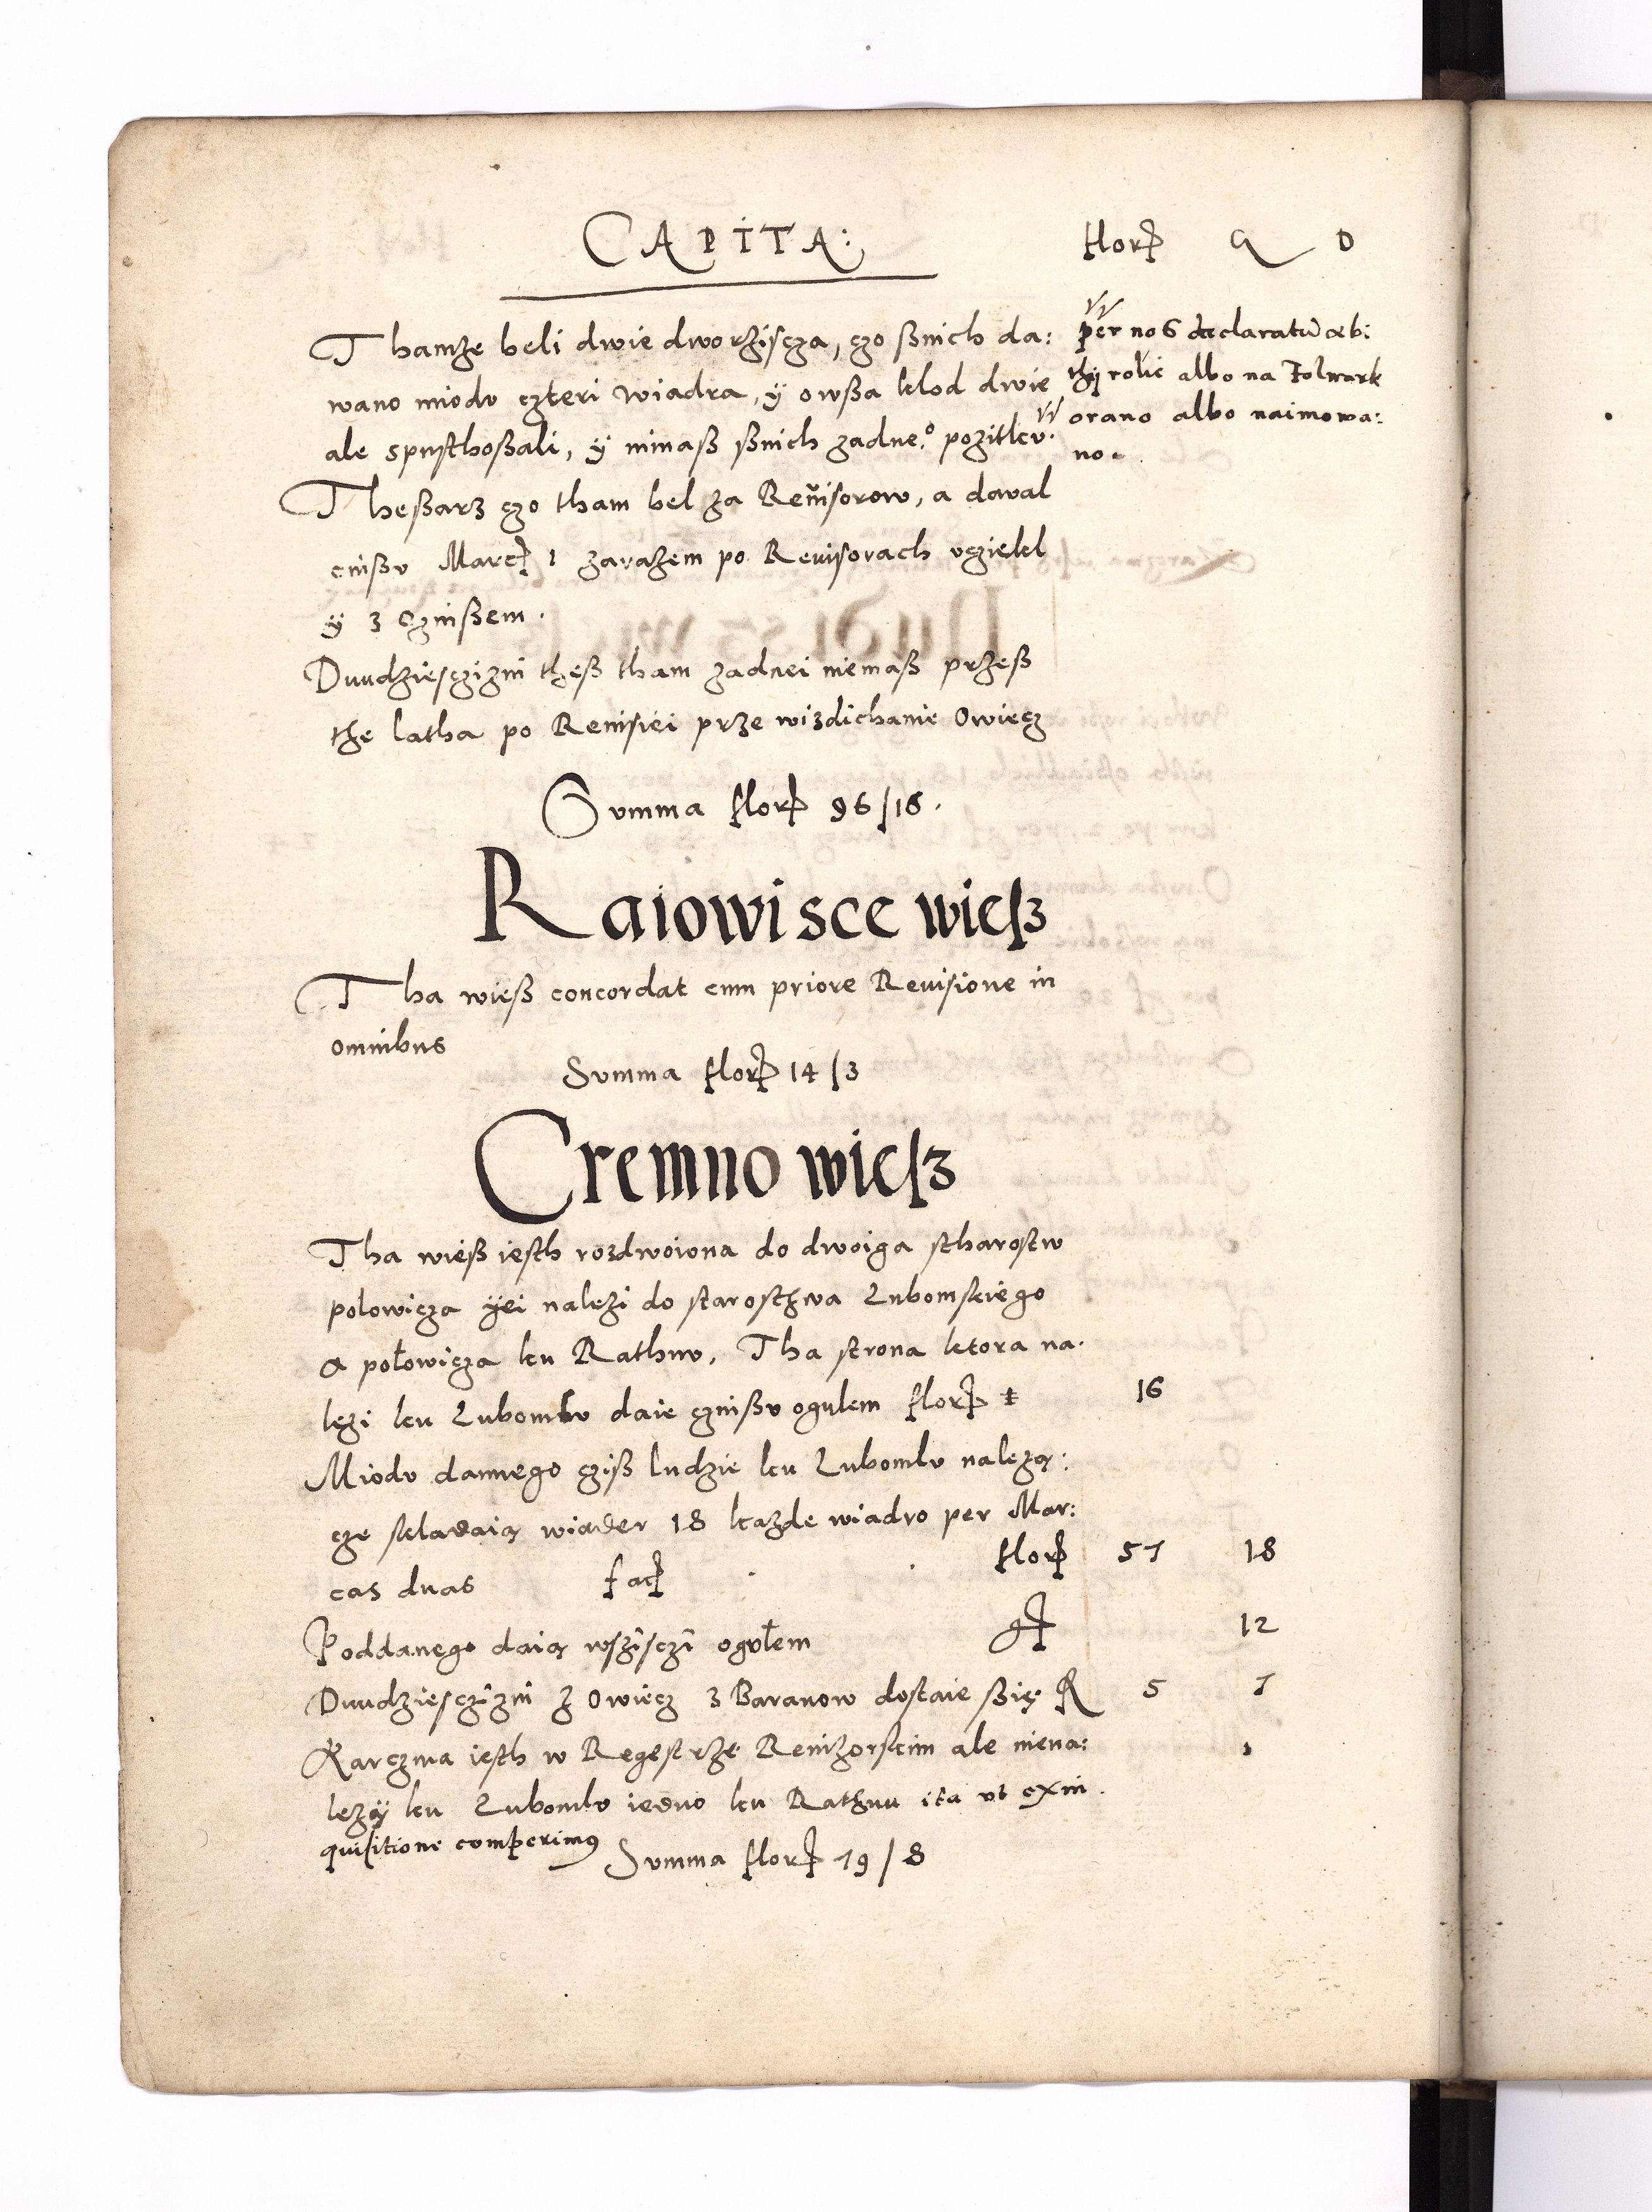 CAPITA: flor g D
Thamże beli dwie dworżiſcża, cżo ßnich da:
wano miodv cżteri wiadra, ÿ owßa klod dwie
ale spusthoßali, ÿ nimaß ßnich żadne:º pożitkv.
per nos declaratũ ab:
thÿ rolie albo na Folwark
orano albo naimowa:
no.
Theßarz cżo tham bel za Reuiſorow, a dawal
cinßv Marc 1 zarażem po Reuiſorach vcziekl
ÿ z Czinßem.
Dwudzieſcżizni theß tham żadnei niemaß przeß
the latha po Reuiſiei prze wizdichanie Owiecz
Summa flor 96/18.
Raiowisce wieſz
Tha wieß concordat cum priore Reuiſione in
omnibus
Summa flor 14/3
Cremno wieſz
Tha wieß ieſth rozdwoiona do dwoiga ſtharoſtw
polowicza ÿei należi do ſtaroſthwa Lubomſkiego
a połowicza ku Rathnv, Tha ſtrona ktora na.
leżi ku Lubomlv daie czinßv ogulem flor 16
Miodv dannego cziß ludzie ku Lubomlv należą:
cze ſkladaią wiader 18 każde wiadro per Mar:
cas duas fac flor 57 18
Poddanego daią wſziſczi ogołem g 12
Dwudzieſcżizni z Owiecz 3 Baranow doſtaie ßię R 5 7
Karczma ieſth w Regeſtrże Reuiżorſkim ale niena:
leży ku Lubomlv iedno ku Rathnu ita vt ex in
quiſitione comperimus Summa flor 79/8